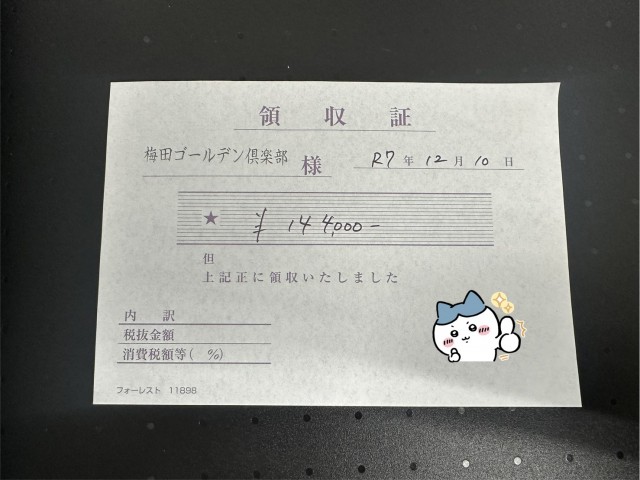 領収証
梅田ゴールデン倶楽部 様
R7年12月10日
★ ¥144,000-
但
上記正に領収いたしました
内訳
税抜金額
消費税額等( %)
フォーレスト 11898